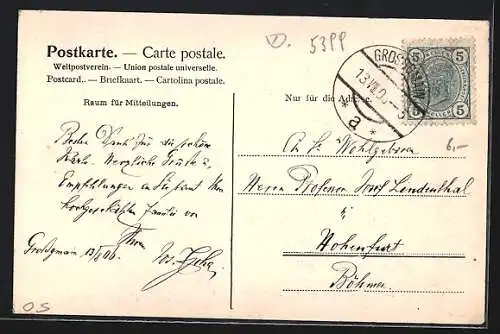 Postkarte. — Carte postale.
Weltpostverein. — Union postale universelle.
Postcard. — Briefkaart. — Cartolina postale.
D. 5399
Raum für Mitteilungen.
Nur für die Adresse.
GROSS
13 VII 0
* a *
5 5
5 5
6,-
Besten Dank für die schöne
Karte. Herzliche Grüße u.
Empfehlungen an Sie samt Ihrer
hochgeschätzten Familie von
Ihrem
Großgmain 13/7 06. Jos.
Sr. Wohlgeboren
Herrn Professor Josef Lindenthal
Hohenfurt
Böhmen
OS